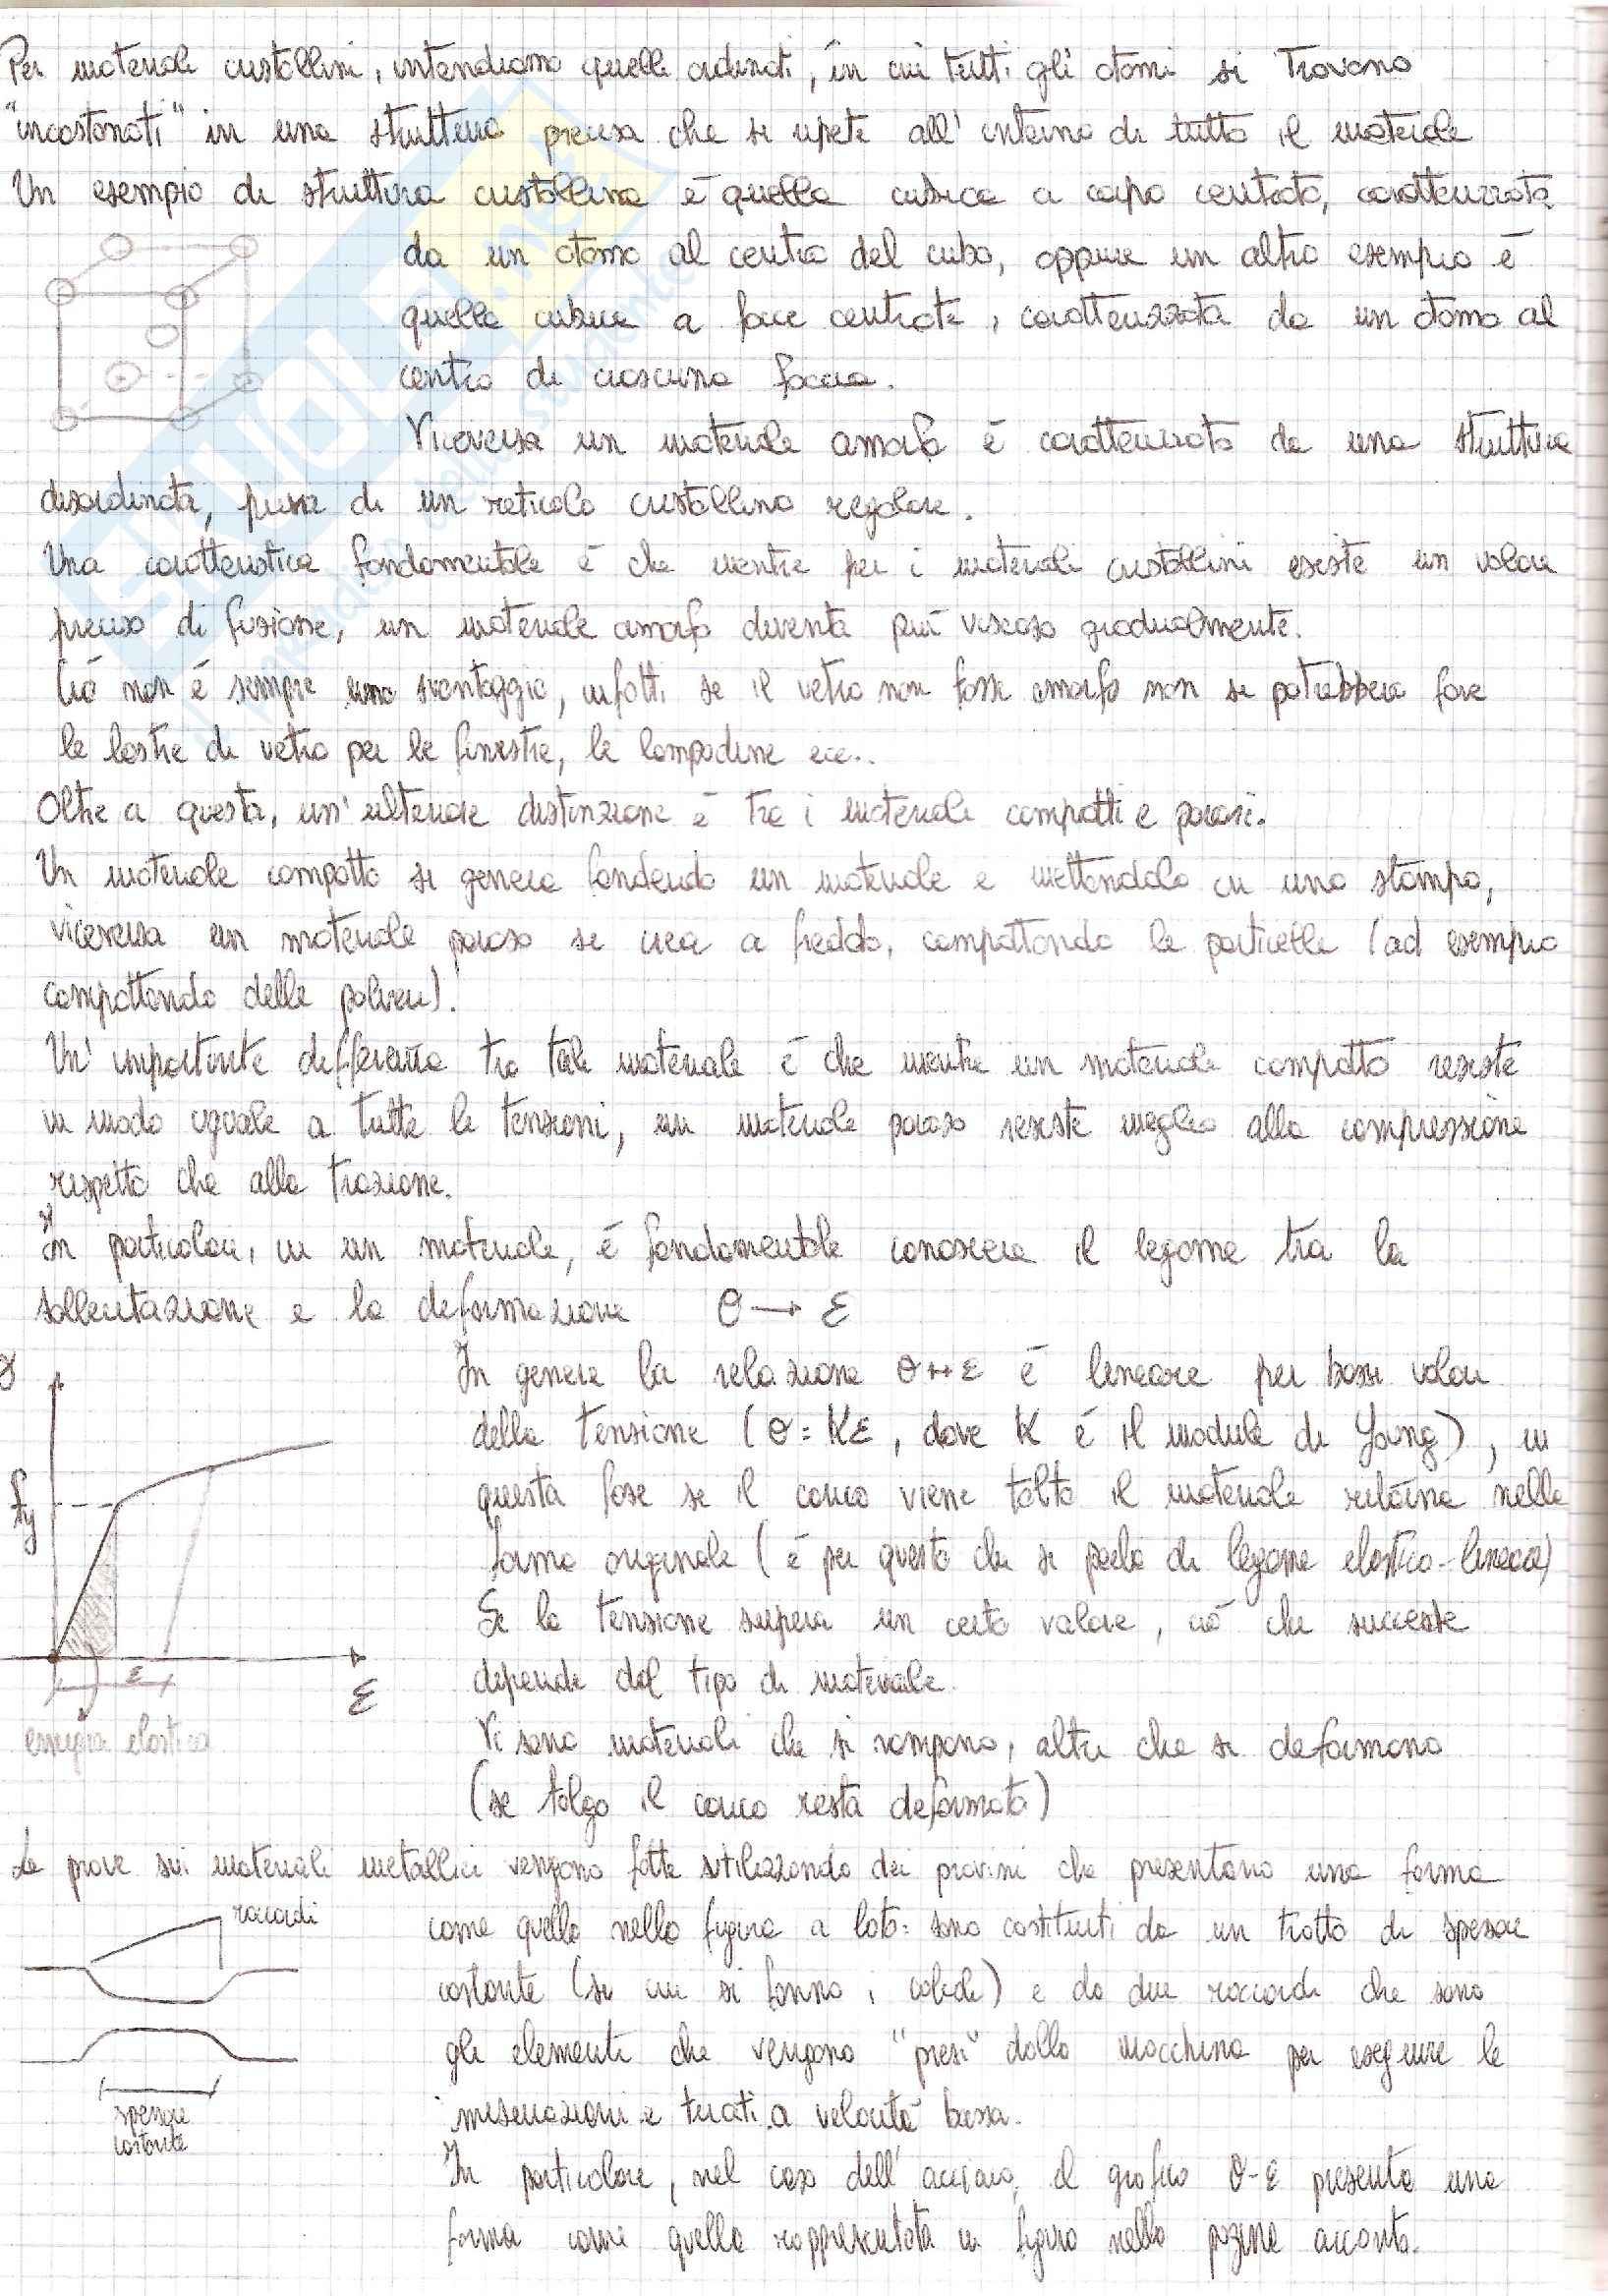 Per materiali cristallini, intendiamo quelli ordinati, in cui tutti gli atomi si trovano
"incastonati" in una struttura precisa che si ripete all'interno di tutto il materiale
Un esempio di struttura cristallina è quella cubica a corpo centrato, caratterizzata
da un atomo al centro del cubo, oppure un altro esempio è
quella cubica a facce centrate, caratterizzata da un atomo al
centro di ciascuna faccia.
Viceversa un materiale amorfo è caratterizzato da una struttura
disordinata, priva di un reticolo cristallino regolare.
Una caratteristica fondamentale è che mentre per i materiali cristallini esiste un valore
preciso di fusione, un materiale amorfo diventa più viscoso gradualmente.
Ciò non è sempre uno svantaggio, infatti se il vetro non fosse amorfo non si potrebbero fare
le lastre di vetro per le finestre, le lampadine ecc..
Oltre a questa, un'ulteriore distinzione è tra i materiali compatti e porosi.
Un materiale compatto si genera fondendo un materiale e mettendolo in uno stampo,
viceversa un materiale poroso si crea a freddo, compattando le particelle (ad esempio
compattando delle polveri).
Un'importante differenza tra tali materiale è che mentre un materiale compatto resiste
in modo uguale a tutte le tensioni, un materiale poroso resiste meglio alla compressione
rispetto che alla trazione.
In particolare, in un materiale, è fondamentale conoscere il legame tra la
sollecitazione e la deformazione σ → ε
In genere la relazione σ↔ε è lineare per bassi valori
della tensione (σ = Kε, dove K è il modulo di Young), in
questa fase se il carico viene tolto il materiale ritorna nella
forma originale (è per questo che si parla di legame elastico-lineare)
Se la tensione supera un certo valore, ciò che succede
dipende dal tipo di materiale.
Vi sono materiali che si rompono, altri che si deformano
(se tolgo il carico resta deformato)
σ
fy
ε
ε
energia elastica
Le prove sui materiali metallici vengono fatte utilizzando dei provini che presentano una forma
come quella nella figura a lato: sono costituiti da un tratto di spessore
costante (su cui si fanno i calcoli) e da due raccordi che sono
gli elementi che vengono "presi" dalla macchina per eseguire le
misurazioni e tirati a velocità bassa.
In particolare, nel caso dell'acciaio, il grafico σ-ε presenta una
forma come quella rappresentata in figura nella pagina accanto.
raccordi
spessore
costante